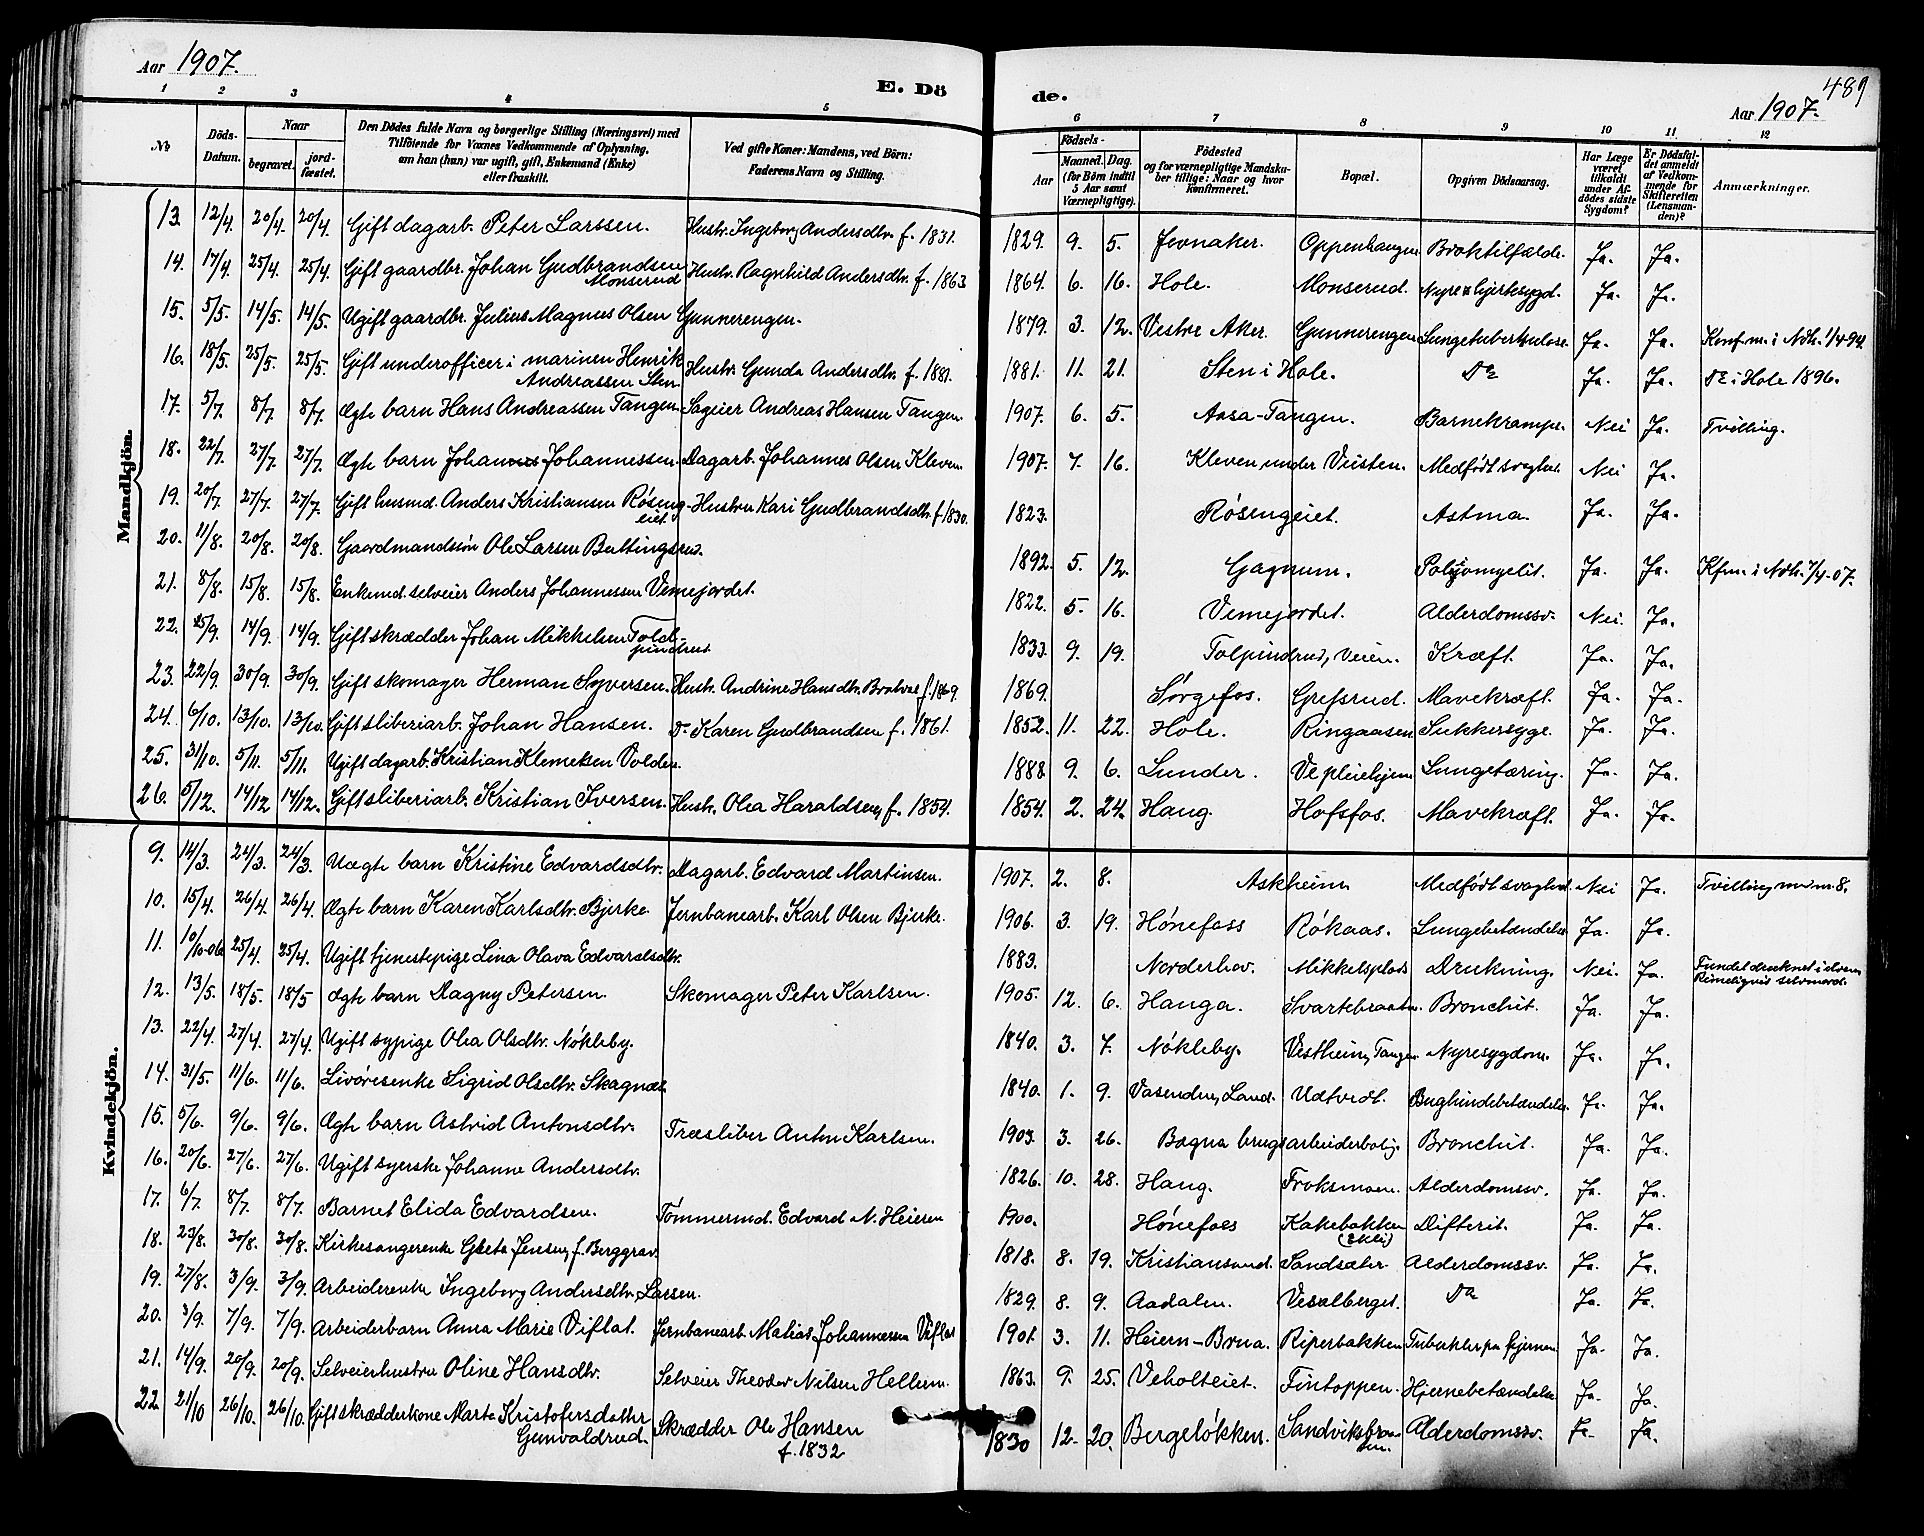 Aar 1907.
E. Dö
de.
Aar 1907.
489
1 2 3 4 5
6 7 8 9 10 11 12
No
Döds-Datum.
Naar
begravet.
jord-fæstet.
Den Dödes fulde Navn og borgerlige Stilling (Næringsvei) med
Tilföiende for Voxnes Vedkommende af Oplysning,
om han (hun) var ugift, gift, Enkemand (Enke)
eller fraskilt.
Ved gifte Koner: Mandens, ved Börn:
Faderens Navn og Stilling.
Födsels-
Aar
Maaned. Dag.
(for Börn indtil
5 Aar samt
Værnepligtige).
Födested
og for værnepligtige Mandska-
ber tillige: Naar og hvor
konfirmeret.
Bopæl.
Opgiven Dödsaarsag.
Har Læge
været
tilkaldt
under Af-
dödes sidste
Sygdom?
Er Dödsfal-
det anmeldt
af Vedkom-
mende for
Skifteretten
(Lensman-
den)?
Anmærkninger.
Mandkjön.
13. 12/4. 20/4. 20/4. Gift dagarb. Peter Larssen. Hustr. Ingeborg Andersdtr. f. 1831. 1829. 9. 5. Jevnaker. Oppenhaugen Broktilfælde. Ja. Ja.
14. 17/4. 25/4. 25/4. Gift gaardbr. Johan Gudbrandsen Monserud Hustr. Ragnhild Andersdtr. f. 1863 1864. 6. 16. Hole. Monserud. Nyre & Hjertesygd. Ja. Ja.
15. 5/5. 14/5. 14/5. Ugift gaardbr. Julius Magnus Olsen Gunnerengen. 1879. 3. 12. Vestre Aker. Gunnerengen Lungetuberkulose. Ja. Ja. Konf. m. i Ndh. 1/4-94.
16. 18/5. 25/5. 25/5. Gift underofficer i marinen Henrik Andreassen Sten. Hustr. Gunda Andersdtr. f. 1881. 1881. 11. 21. Sten i Hole. Do Ja. Ja. Do i Hole 1896.
17. 5/7. 8/7. 8/7. Ægte barn Hans Andreassen Tangen. Sageier Andreas Hansen Tangen. 1907. 6. 5. Aasa-Tangen. Barnekrampe. Nei Ja. Tvilling.
18. 22/7. 27/7. 27/7. Ægte barn Johannes Johannessen. Dagarb. Johannes Olsen Kleven. 1907. 7. 16. Kleven under Veisten. Medfödt svaghed. Nei Ja.
19. 20/7. 27/7. 27/7. Gift husmd. Anders Kristiansen Rösengeiet. Hustru Kari Gudbrandsdtr. f. 1830. 1823. Rösengeiet. Astma. Ja. Ja.
20. 11/8. 20/8. 20/8. Gaardmandssön Ole Larsen Buttingsrud. 1892. 5. 12. Gagnum. Poliyomyelit. Ja. Ja. Kfm. i Ndh. 7/4-07.
21. 8/8. 15/8. 15/8. Enkemd. selveier Anders Johannessen Vemejordet. 1822. 5. 16. Vemejordet. Alderdomssv. Nei. Ja.
22. 5/9. 14/9. 14/9. Gift skrædder Johan Mikkelsen Toldpindrud 1833. 9. 19. Tolpindrud, Veien. Kræft. Ja. Ja.
23. 22/9. 30/9. 30/9. Gift skomager Herman Syversen. Hustr. Andrine Hansdtr. Bratvæl f. 1869. 1869. Sörgefos. Grefsrud. Mavekræft. Ja. Ja.
24. 6/10. 13/10. 13/10. Gift sliberiarb. Johan Hansen. Do Karen Gudbrandsen f. 1861. 1852. 11. 22. Hole. Ringaasen Sukkersyge. Ja. Ja.
25. 31/10. 5/11. 5/11. Ugift dagarb. Kristian Klemetsen Volden. 1888. 9. 6. Lunder. Ve pleiehjem Lungetæring. Ja. Ja.
26. 5/12. 14/12 14/12. Gift sliberiarb. Kristian Iversen. Hustr. Olea Haraldsen, f. 1854. 1854. 2. 24. Haug. Hofsfos. Mavekræft. Ja. Ja.
Kvindekjön.
9. 14/3. 24/3. 24/3. Uægte barn Kristine Edvardsdtr. Dagarb. Edvard Martinsen. 1907. 2. 8. Askheim Medfödt svaghed Nei Ja. Tvilling m. m. 8.
10. 15/4. 26/4. 26/4. Ægte barn Karen Karlsdtr. Bjerke. Jernbanearb. Karl Olsen Bjerke. 1906. 3. 19. Hönefoss Rökaas. Lungebetændelse Ja. Ja.
11. 10/10-06 25/4. 25/4. Ugift tjenestepige Lina Olava Edvardsdtr. 1883. Norderhov. Mikkelsplads Drukning. Nei. Ja. Fundet druknet i elven. Rimeligvis selvmord.
12. 13/5. 18/5. 18/5 Ægte barn Dagny Petersen. Skomager Peter Karlsen. 1905. 12. 6. Hauga. Svartebraaten. Bronchit. Ja. Ja.
13. 22/4. 27/4. 27/4. Ugift sypige Olea Olsdtr. Nökleby. 1840. 3. 7. Nökleby. Vestheim, Tangen Nyresygdom. Ja. Ja.
14. 31/5. 11/6. 11/6. Livöresenke Sigrid Olsdtr. Skagnæs. 1840. 1. 9. Vasenden, Land. Udtvedt. Bughindebetændelse Ja. Ja.
15. 5/6. 9/6. 9/6. Ægte barn Astrid Antonsdtr. Træsliber Anton Karlsen. 1903. 3. 26. Bægna brugs arbeiderbolig. Bronchit. Ja. Ja.
16. 20/6. 27/6. 27/6. Ugift syerske Johanne Andersdtr. 1826. 10. 28. Haug. Froksmoen. Alderdomssv. Ja. Ja.
17. 6/7. 8/7. 8/7. Barnet Elida Edvardsen. Tömmermd. Edvard N. Heieren 1900. Hönefoss Kakebakken (Ekli) Difterit. Ja. Ja.
18. 23/8. 30/8. 30/8. Kirkesangerenke Grete Jensen, f. Berggrav. 1818. 8. 19. Kristiansund. Sandsæter. Alderdomssv. Ja. Ja.
19. 27/8. 3/9. 3/9. Arbeiderenke Ingeborg Andersdtr. Larsen. 1829. 8. 9. Aadalen. Veselberget. Do Ja. Ja.
20. 3/9. 7/9. 7/9. Arbeiderbarn Anna Marie Viflat. Jernbanearb. Matias Johannessen Viflat 1901. 3. 11. Heiern-Brua. Riperbakken Tuberkler paa hjernen Ja. Ja.
21. 14/9. 20/9. 20/9. Selveierhustru Oline Hansdtr. Selveier Theodor Nilsen Hellum. 1863. 9. 25. Veholteiet. Fintoppen. Hjernebetændelse Ja. Ja.
22 21/10 26/10. 26/10. Gift skrædderkone Marte Kristofersdatter Gunvaldrud. Skrædder Ole Hansen f. 1832 1830 12. 20. Bergelökken. Sandviksbraaten. Alderdomssv. Ja. Ja.